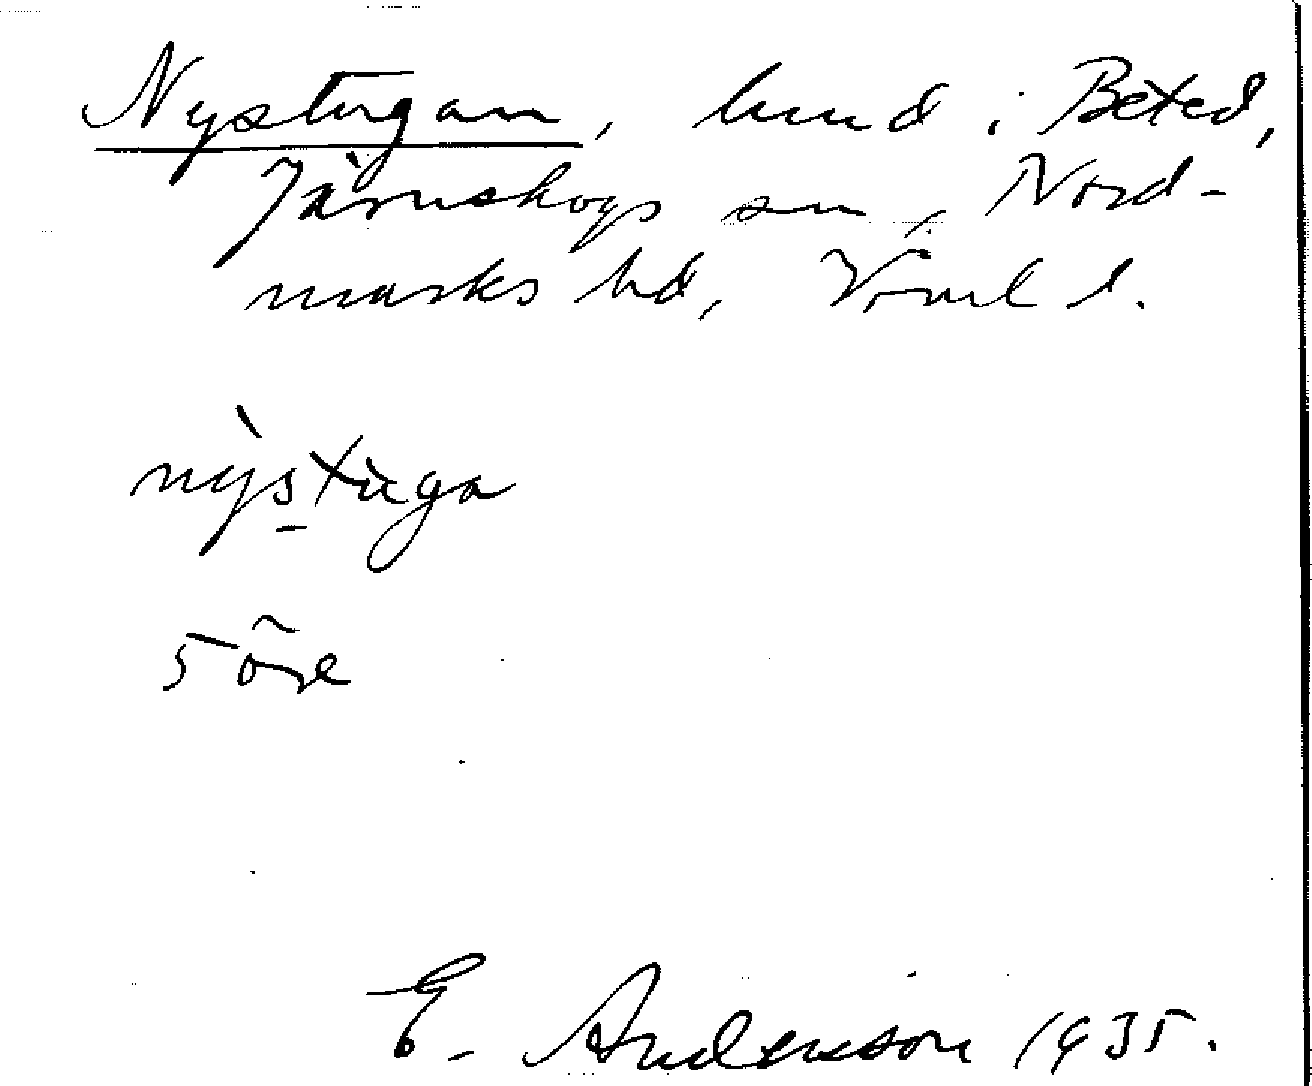 Nystugan, hmd i Beted,
Järnskogs sn, Nord-
marks hd, Värml l.
nỳstùga
5 öre
E. Anderson 1935.